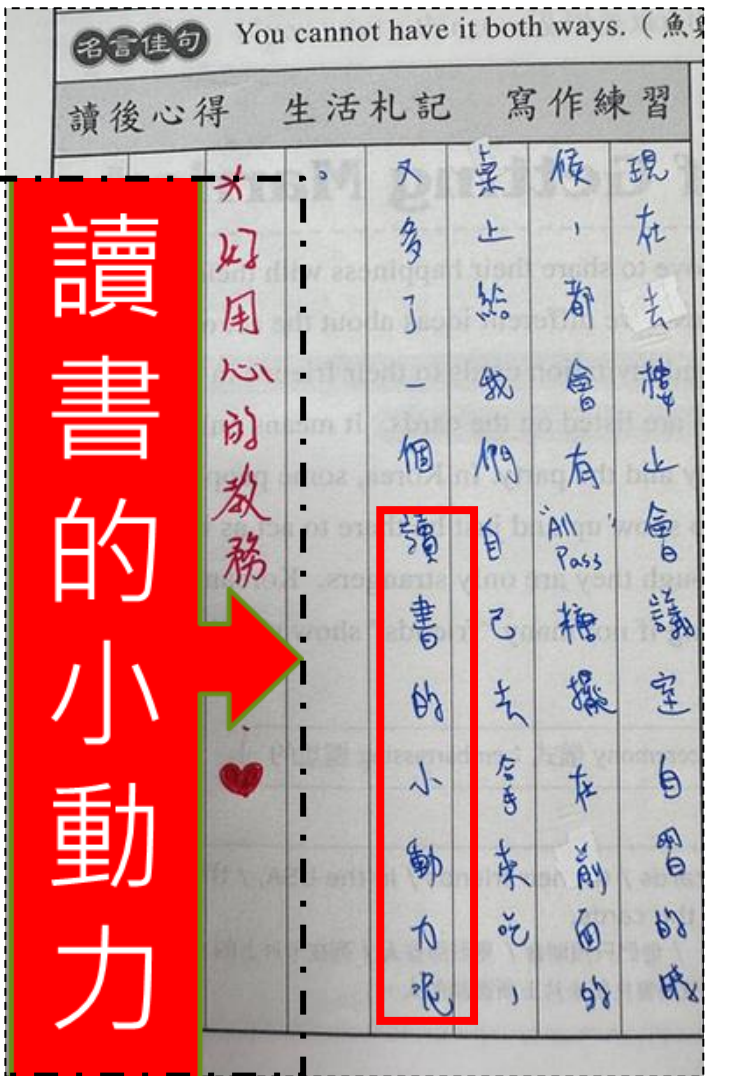 名言佳句 You cannot have it both ways.（魚
讀後心得 生活札記 寫作練習
現在去樓上會議室自習的時
候，都會有"All Pass"糖擺在前面的
桌上給我們自己去拿來吃，
又多了一個讀書的小動力呢
。
好用心的教務
讀書的小動力